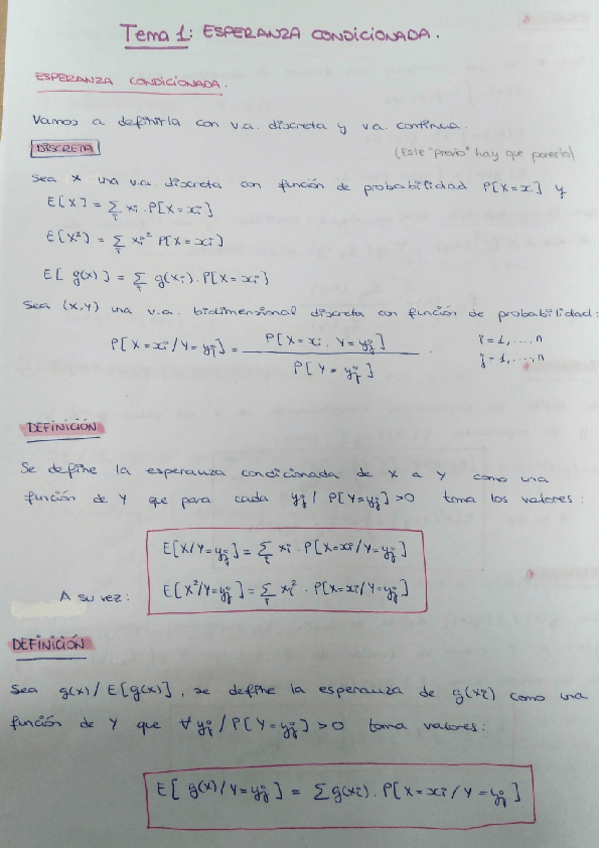 Tema 1: ESPERANZA CONDICIONADA.
ESPERANZA CONDICIONADA.
Vamos a definirla con v.a. discreta y v.a. continua.
DISCRETA
(Este "previo" hay que ponerlo)
Sea X una v.a. discreta con función de probabilidad P[X=x] y
E[X] = Σᵢ xi · P[X=xi]
E[X²] = Σᵢ xi² P[X=xi]
E[g(x)] = Σᵢ g(xi) · P[X=xi]
Sea (X,Y) una v.a. bidimensional discreta con función de probabilidad:
P[X=xi/Y=yj] = P[X=xi, Y=yj] / P[Y=yj] i=1,...,n
j=1,...,n
DEFINICIÓN
Se define la esperanza condicionada de X a Y como una
función de Y que para cada yj / P[Y=yj]>0 toma los valores:
E[X/Y=yj] = Σᵢ xi · P[X=xi/Y=yj]
A su vez: E[X²/Y=yj] = Σᵢ xi² · P[X=xi/Y=yj]
DEFINICIÓN
Sea g(x) / E[g(x)], se define la esperanza de g(xi) como una
función de Y que ∀ yj / P[Y=yj]>0 toma valores:
E[g(x)/Y=yj] = Σ g(xi) · P[X=xi/Y=yj]